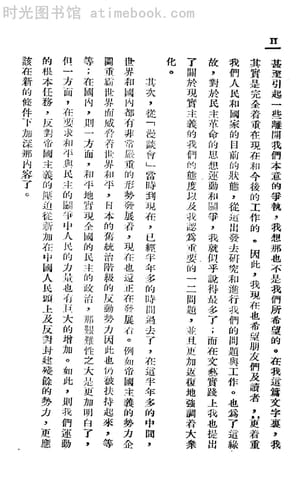 时光图书馆
atimebook.com
II
甚至引起一些離開我們本意的爭執，我想那也不是我們所希望的。在我這篇文字裏，我
其實是完全着重在現在和今後的工作的。因此，我現在也希望朋友們及讀者，更着重
我們人民和國家的目前的狀態，從這出發去研究和進行我們的問題與工作。也爲了這緣
故，對於民主革命的思想運動和關爭，我就似乎說得最多了；而在文藝實踐上我也提出
了關於現實主義的我們的態度以及我認爲重要的一二問題，並且更加返復地強調着大衆
化。
其次，從「漫談會」當時到現在，已經半年多的時間過去了，在這半年多的中間，
世界和國內都有非常嚴重的形勢發展着，現在也還正在發展着。例如帝國主義的勢力企
圖重霸世界而威脅着世界和平，日本的舊統治階級的反動勢力因此也仍被扶持起來，等
等；在國內，則一方面，和平地實現全國的民主的政治，那艱難性之大是更加明白了，
但一方面，在要求和平與民主的關爭中人民的力量也有巨大的增加。如此，則我們運動
的根本任務，反對帝國主義的壓迫從新加在中國人民頭上及反對封建殘餘的勢力，更應
該在新的條件下加深那內容了。